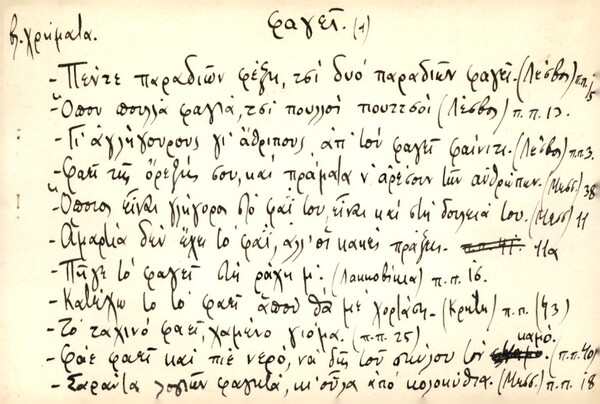 φαγεῖ. (1)
βλ. χρήματα.
- Πέντε παραδιῶν φέξη, τσί δυό παραδιῶν φαγεῖ. (Λέσβος) π.π. 15
- Ὅπου πουλλά φαγιά, τσί πουλλοί πουττσοί (Λέσβος) π.π. 13.
- Γι' ἀγλήγουρους γι' ἄθριπους ἀπ' τού φαγεῖ φαίνιτι. (Λέσβος) π.π. 3.
- Φαεῖ τῆς ὄρεξής σου, καί πράματα ν' ἀρέσουν τῶν ἀνθρώπων. (Μεσσ.) 38
- Ὅποιος εἶναι γλήγορος στό φαΐ του, εἶναι καί στή δουλειά του. (Μεσσ) 11
- Ἁμαρτία δέν ἔχει τό φαΐ, ἀλλ' οἱ κακές πράξεις. 11α
- Πῆγε τό φαγεῖ στή ράχη μ'. (Λακκοβίκια) π.π. 16.
- Κατέχω το τό φαεῖ ἅπου θά μέ χορτάση. - (Κρήτη) π.π. (43)
- Τό ταχινό φαεῖ, χαμένο γιόμα. (π.π. 25)
- Φάε φαεῖ καί πιέ νερό, νά δῆς τοῦ σκύλου τόν καμό. (π.π. 40)
- Σαράντα λογιῶν φαγητά, κι' οὗλα ἀπό κολοκύθια. (Μεσσ.) π.π. 18